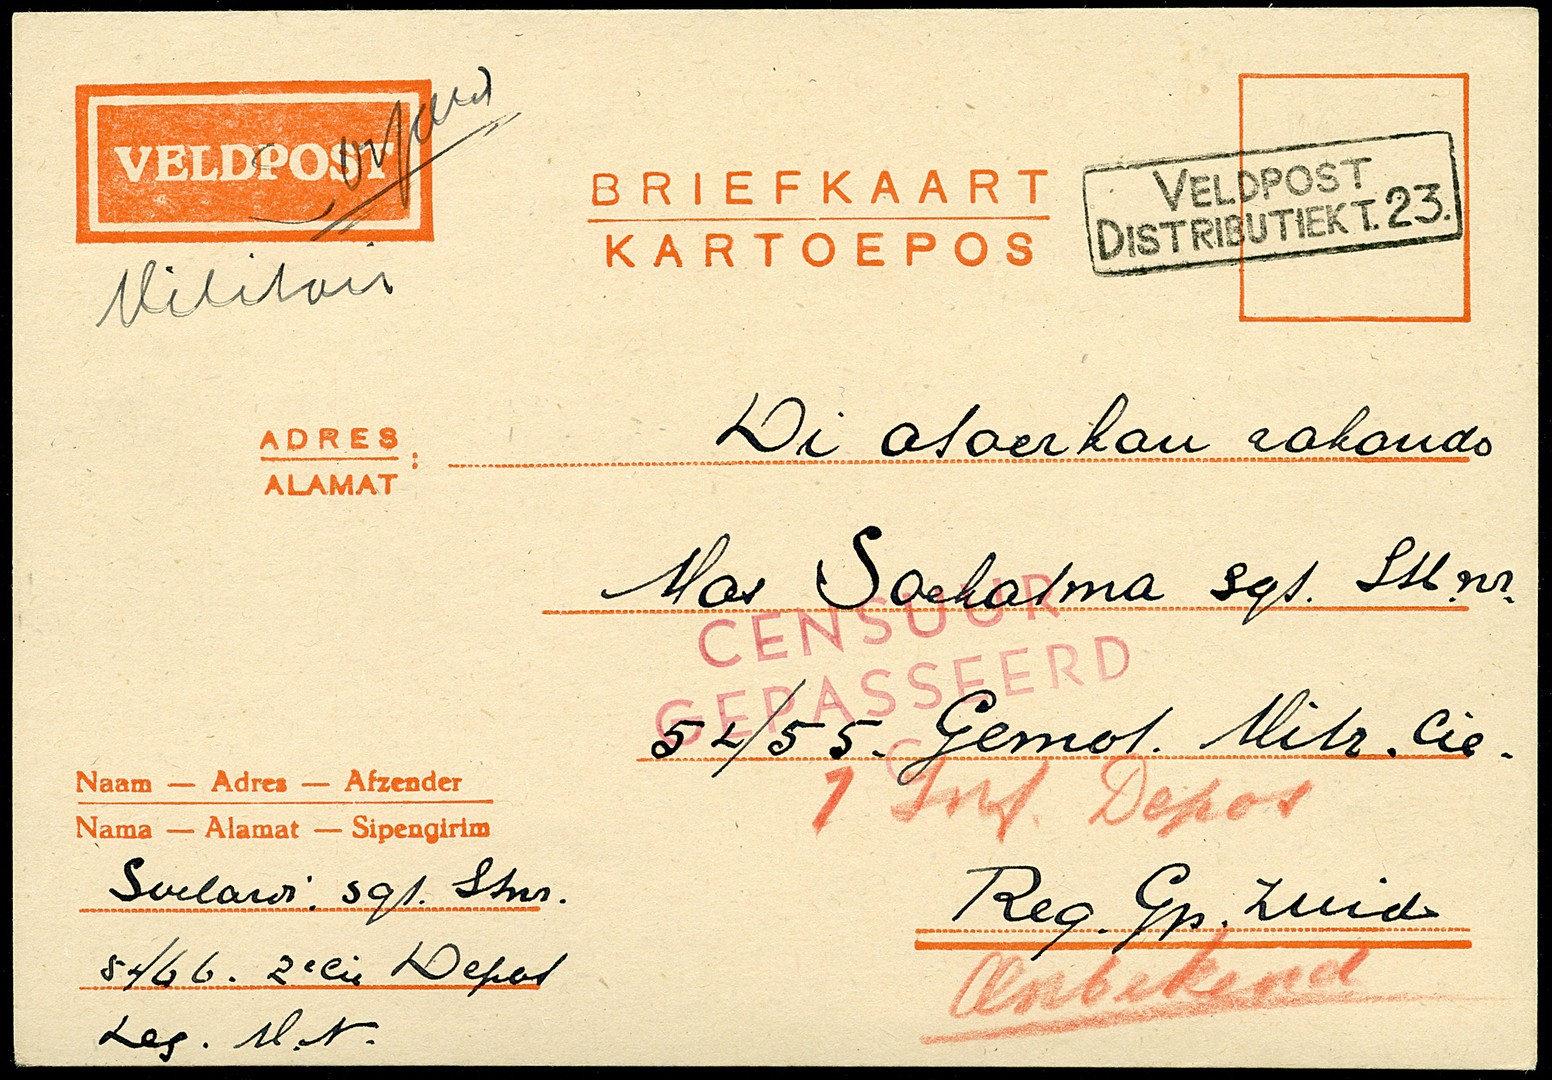 VELDPOST
Militair
BRIEFKAART
KARTOEPOS
VELDPOST
DISTRIBUTIEKT. 23.
ADRES
ALAMAT :
Di atoerkan
Mas Soekatma sgt. nr.
CENSUUR
GEPASSEERD
54/55. Gemot. Mitr. Cie.
7 Inf. Depot
Reg. Gp. Zuid
Onbekend
Naam — Adres — Afzender
Nama — Alamat — Sipengirim
Soelardi. sgt. Stnr.
54/66. 2e Cie Depot
Leg. M.N.